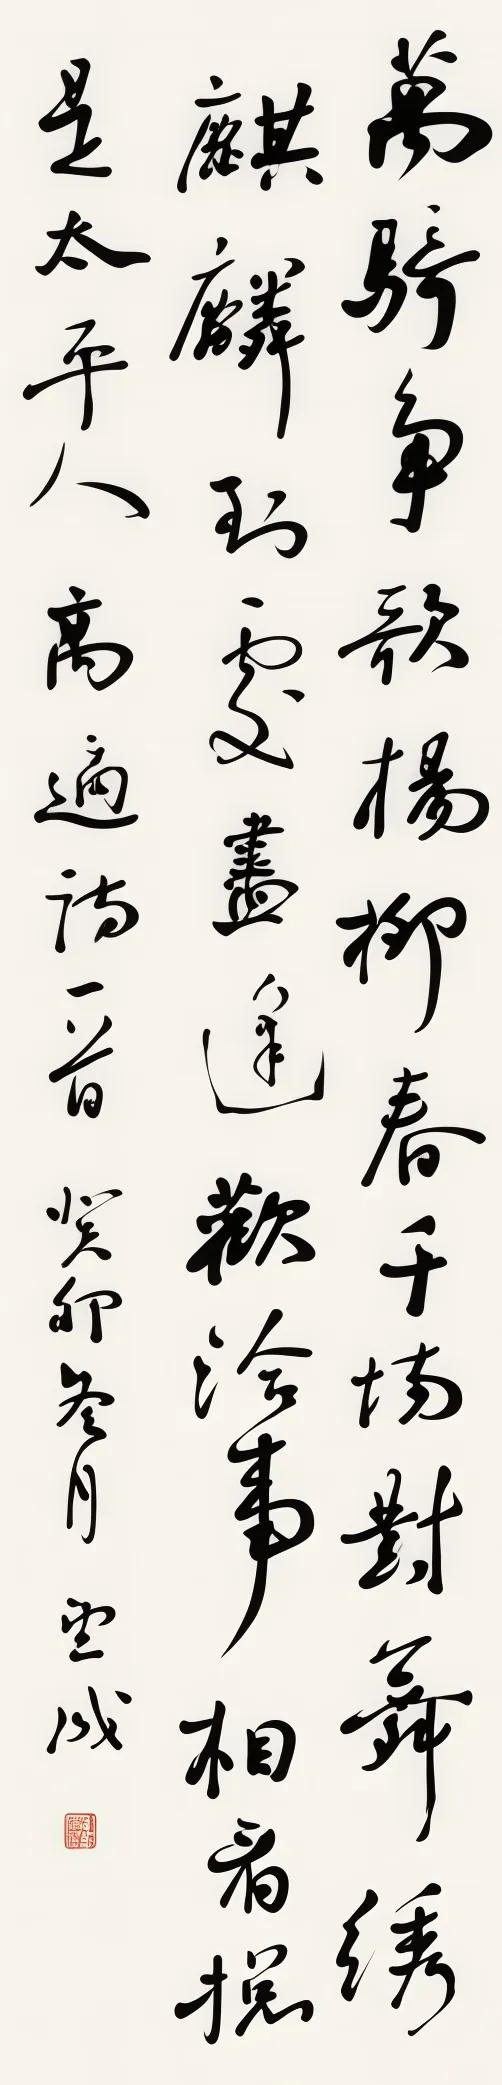 萬騎争歌楊柳春千場對舞绣
麒麟到處盡逢歡洽事相看揔
是太平人 高適詩一首 癸卯冬月 雲成